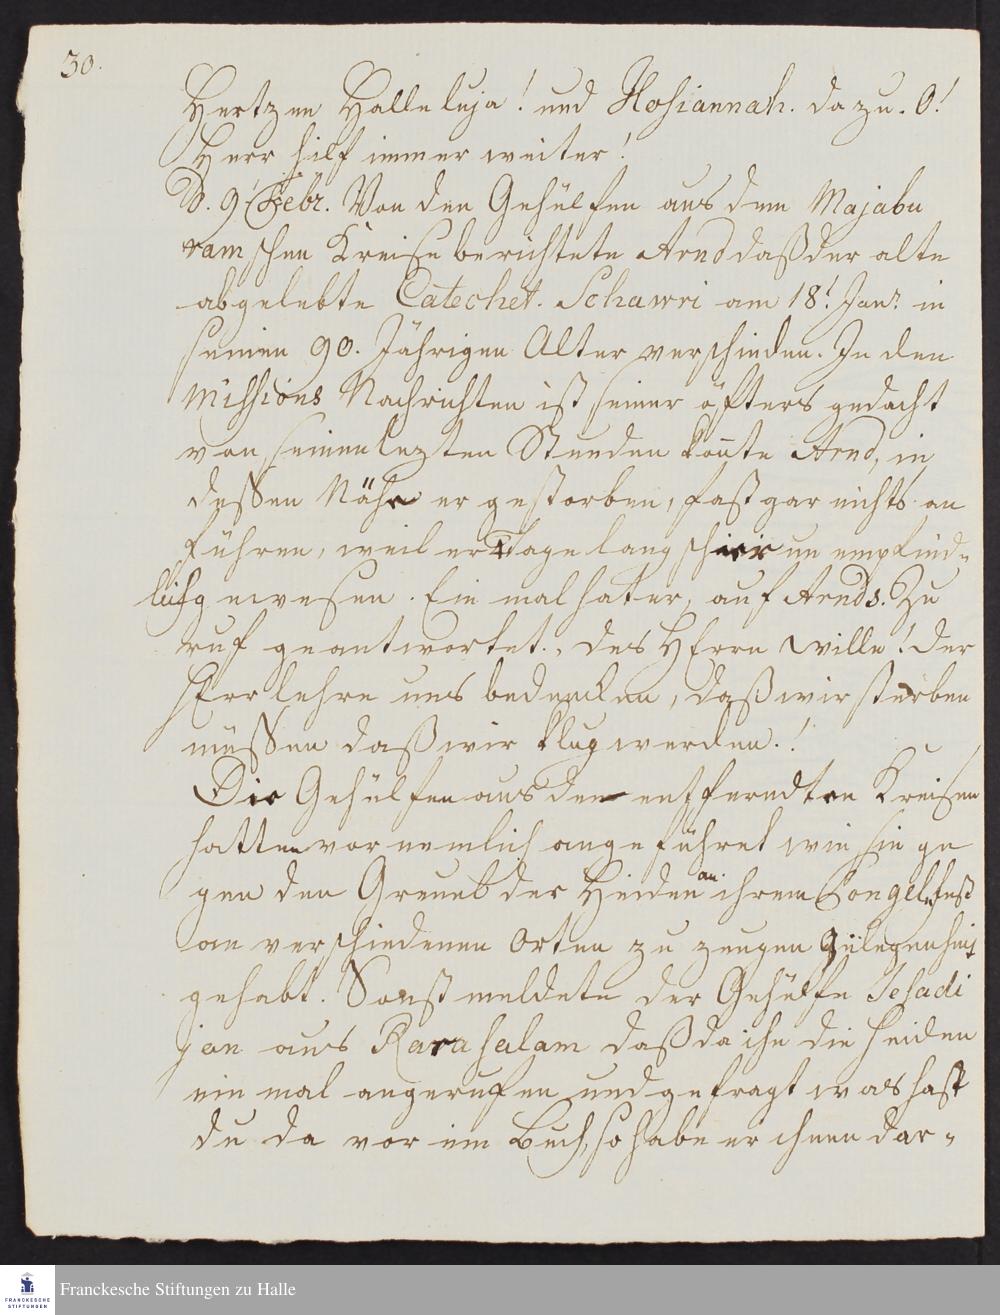 30.
Hertzen Halleluja! und Hosiannah. dazu. O!
Herr hilf immer weiter!
D. 9t Febr. Von den Gehülfen aus dem Majabu
ramschen Kreise berichtete Arnd daß der alte
abgelebte Catechet. Schawri am 18t Janr. in
seinen 90. Jährigen Alter verschieden. In den
Missions Nachrichten ist seiner öfters gedacht
von seinen lezten Stunden koñte Arnd, in
deßen Nähe er gestorben, fast gar nichts an
führen, weil er 4 Tage lang schier un empfind-
lich gewesen. Ein mal hat er, auf Arnds. Zu
ruf geantwortet., des HErrn Wille! der
HErr lehre uns bedencken, daß wir sterben
müßen daß wir klug werden.!
Die Gehülfen aus den entferndten Kreisen
hatten vornemlich angeführet wie sie ge
gen den Greuel der Heiden an ihrem Pongel Fest
an verschiedenen Orten zu zeugen Gelegenheit
gehabt. Sonst meldete der Gehülfe Jesadi
jan aus Karasalam daß da ihn die Heiden
ein mal angerufen und gefragt was hast
du da vor ein Buch, so habe er ihnen dar-
Franckesche Stiftungen zu Halle
FRANCKESCHE
STIFTUNGEN